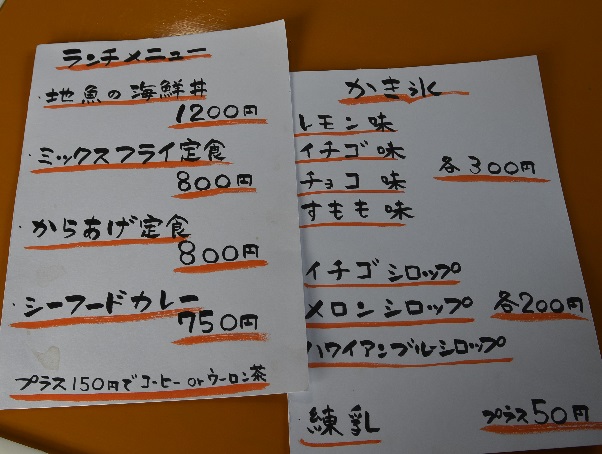 ランチメニュー
・地魚の海鮮丼
1200円
・ミックスフライ定食
800円
・からあげ定食
800円
・シーフードカレー
750円
プラス150円でコーヒーorウーロン茶
かき氷
レモン味
イチゴ味
チョコ味
すもも味
各300円
イチゴシロップ
メロンシロップ
ハワイアンブルシロップ
各200円
練乳
プラス50円